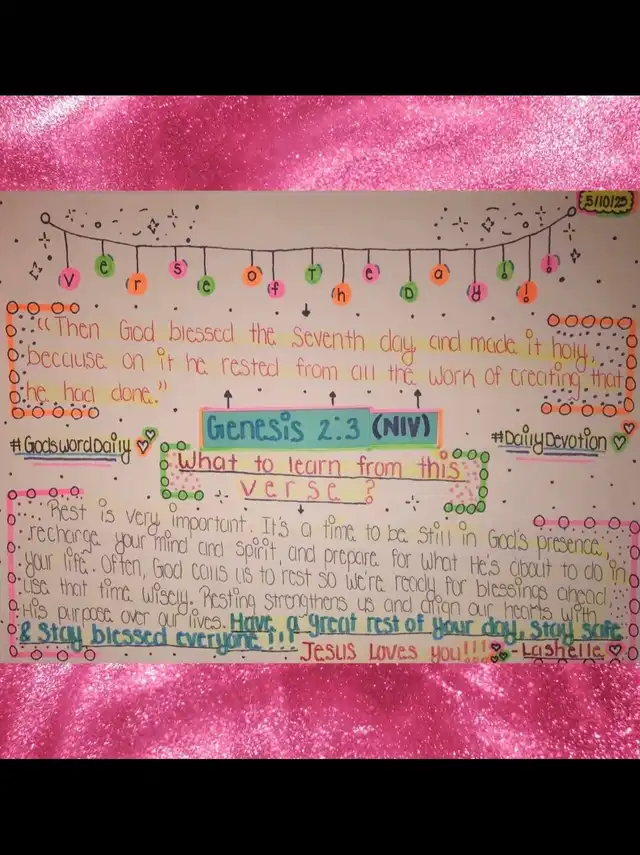 5/10/25
Verse Of The Day!!!
"Then God blessed the Seventh day, and made it holy,
because on it he rested from all the work of creating that
he had done."
Genesis 2:3 (NIV)
#GodsWordDaily
#DailyDevotion
What to learn from this
verse?
... Rest is very important. It's a time to be still in God's presence,
recharge your mind and spirit, and prepare for what He's about to do in
your life. Often, God calls us to rest so we're ready for blessings ahead.
Use that time wisely. Resting strengthens us and align our hearts with
His purpose over our lives. Have a great rest of your day, stay safe
& stay blessed everyone!!!
Jesus Loves you!!! - Lashelle